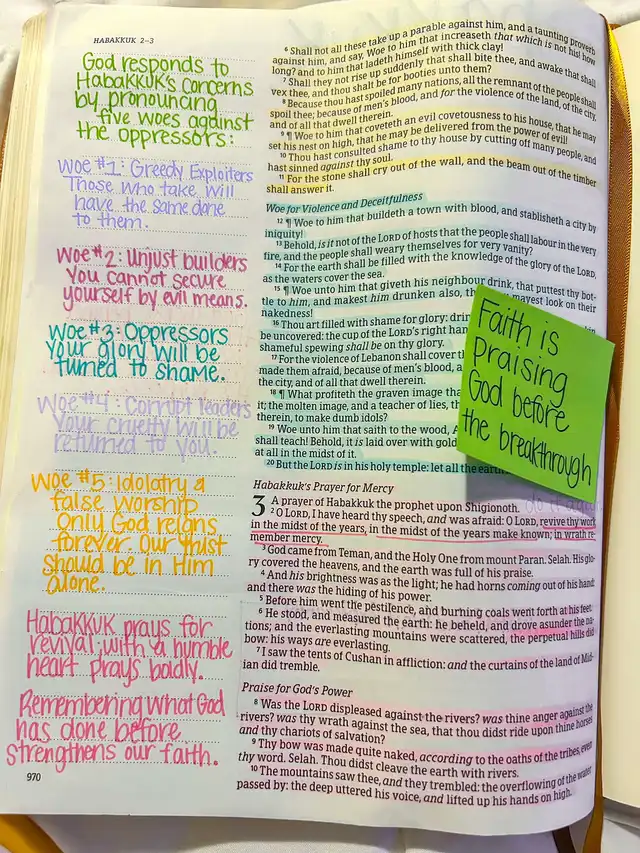 HABAKKUK 2–3
God responds to
Habakkuk's concerns
by pronouncing
five woes against
the oppressors:
Woe #1: Greedy Exploiters
Those who take will
have the same done
to them.
Woe #2: Unjust builders
You cannot secure
yourself by evil means.
Woe #3: Oppressors
Your glory will be
turned to shame.
Woe #4: Corrupt leaders
Your cruelty will be
returned to you.
Woe #5: Idolatry &
false worship
Only God reigns
forever. Our trust
should be in Him
alone.
Habakkuk prays for
revival, with a humble
heart prays boldly.
Remembering what God
has done before
strengthens our faith.
970
6 Shall not all these take up a parable against him, and a taunting proverb
against him, and say, Woe to him that increaseth that which is not his! how
long? and to him that ladeth himself with thick clay!
7 Shall they not rise up suddenly that shall bite thee, and awake that shall
vex thee, and thou shalt be for booties unto them?
8 Because thou hast spoiled many nations, all the remnant of the people shall
spoil thee; because of men's blood, and for the violence of the land, of the city,
and of all that dwell therein.
9 ¶ Woe to him that coveteth an evil covetousness to his house, that he may
set his nest on high, that he may be delivered from the power of evil!
10 Thou hast consulted shame to thy house by cutting off many people, and
hast sinned against thy soul.
11 For the stone shall cry out of the wall, and the beam out of the timber
shall answer it.
Woe for Violence and Deceitfulness
12 ¶ Woe to him that buildeth a town with blood, and stablisheth a city by
iniquity!
13 Behold, is it not of the LORD of hosts that the people shall labour in the very
fire, and the people shall weary themselves for very vanity?
14 For the earth shall be filled with the knowledge of the glory of the LORD,
as the waters cover the sea.
15 ¶ Woe unto him that giveth his neighbour drink, that puttest thy bot-
tle to him, and makest him drunken also, th mayest look on their
nakedness!
16 Thou art filled with shame for glory: drin
be uncovered: the cup of the LORD's right han
shameful spewing shall be on thy glory.
17 For the violence of Lebanon shall cover t
made them afraid, because of men's blood, a
the city, and of all that dwell therein.
18 ¶ What profiteth the graven image tha
it; the molten image, and a teacher of lies, th
therein, to make dumb idols?
19 Woe unto him that saith to the wood, A
shall teach! Behold, it is laid over with gold
at all in the midst of it.
20 But the LORD is in his holy temple: let all the earth
Faith is
praising
God before
the breakthrough
Habakkuk's Prayer for Mercy
3 A prayer of Habakkuk the prophet upon Shigionoth.
do it again
2 O LORD, I have heard thy speech, and was afraid: O LORD, revive thy work
in the midst of the years, in the midst of the years make known; in wrath re-
member mercy.
3 God came from Teman, and the Holy One from mount Paran. Selah. His glo-
ry covered the heavens, and the earth was full of his praise.
4 And his brightness was as the light; he had horns coming out of his hand:
and there was the hiding of his power.
5 Before him went the pestilence, and burning coals went forth at his feet.
6 He stood, and measured the earth: he beheld, and drove asunder the na-
tions; and the everlasting mountains were scattered, the perpetual hills did
bow: his ways are everlasting.
7 I saw the tents of Cushan in affliction: and the curtains of the land of Mid-
ian did tremble.
Praise for God's Power
8 Was the LORD displeased against the rivers? was thine anger against the
rivers? was thy wrath against the sea, that thou didst ride upon thine horses
and thy chariots of salvation?
9 Thy bow was made quite naked, according to the oaths of the tribes, even
thy word. Selah. Thou didst cleave the earth with rivers.
10 The mountains saw thee, and they trembled: the overflowing of the water
passed by: the deep uttered his voice, and lifted up his hands on high.